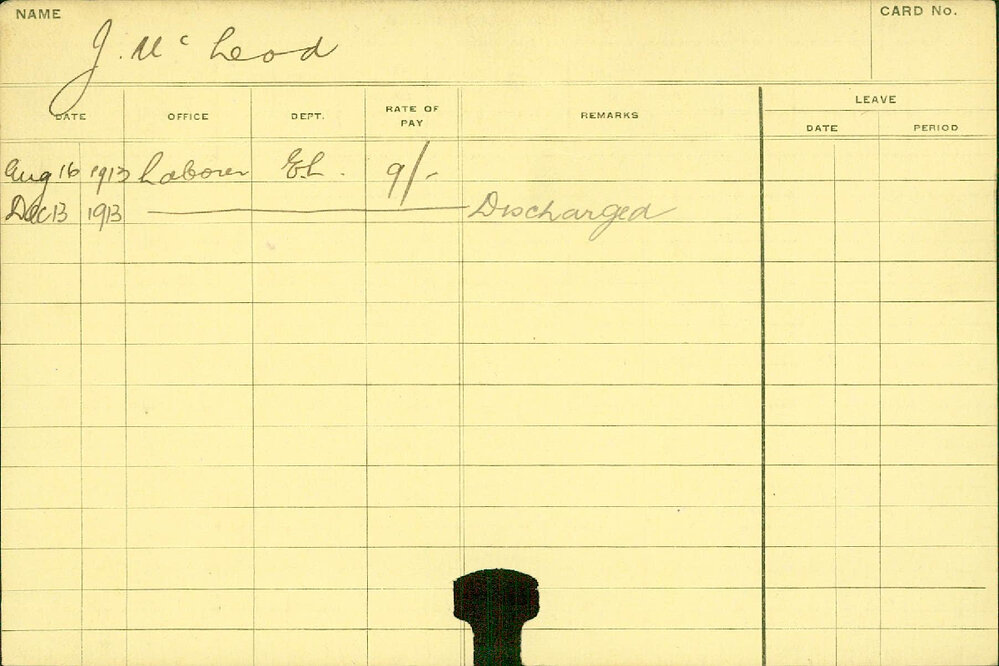 NAME
CARD No.
J. McLeod
DATE OFFICE DEPT. RATE OF PAY REMARKS LEAVE
DATE PERIOD
Aug 16 1913 Laborer E.L. 9/-
Dec 13 1913 Discharged